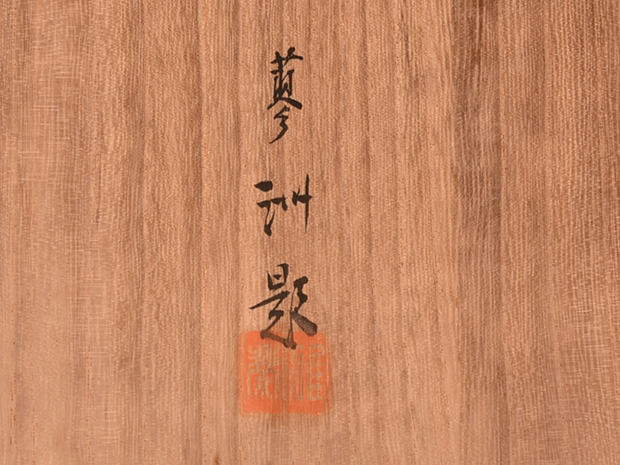 蓼洲題